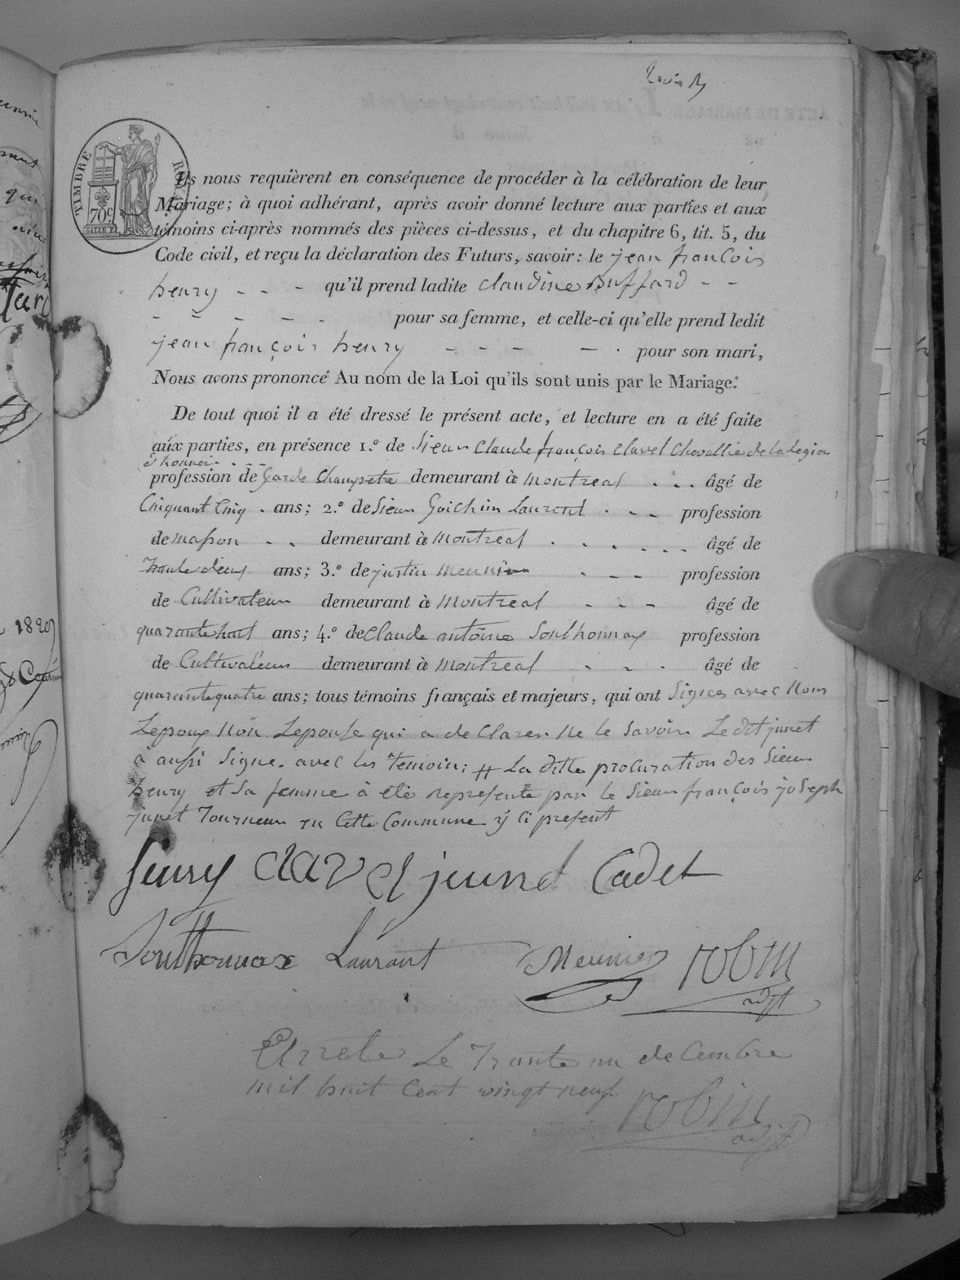 TIMBRE ROYAL
70c
Ils nous requièrent en conséquence de procéder à la célébration de leur
Mariage; à quoi adhérant, après avoir donné lecture aux parties et aux
témoins ci-après nommés des pièces ci-dessus, et du chapitre 6, tit. 5, du
Code civil, et reçu la déclaration des Futurs, savoir: le jean françois
henry - - - qu'il prend ladite claudine Buffard - -
- - - - - pour sa femme, et celle-ci qu'elle prend ledit
jean françois henry - - - - . pour son mari,
Nous avons prononcé Au nom de la Loi qu'ils sont unis par le Mariage.
De tout quoi il a été dressé le présent acte, et lecture en a été faite
aux parties, en présence 1.º de Sieur Claude françois Clavel Chevallie de la Legion
d'honneur - - -
profession de Garde Champetre demeurant à Montreal . . . âgé de
Cinquant Cinq . ans; 2.º de Sieur Goichon Laurent . - - profession
de masson . . demeurant à Montreal . . . . . . âgé de
trante deux ans; 3.º de justin meunier . - - profession
de Cultivateur demeurant à Montreal - - - âgé de
quarante huit ans; 4.º de Claude antoine Sonthonnax profession
de Cultivateur demeurant à Montreal . . . âgé de
quarante quatre ans; tous témoins français et majeurs, qui ont Signes avec Nous
Lepoux Non Lepouse qui a de Clarer Ne le Savoir Le dit junet
a aussi Signe. avec les temoin; # La ditte procuration des Sieur
henry et Sa femme à eté represente par le Sieur françois joSeph
junet Tourneur en Cette Commune y Ci present
henry clavel junet Cadet
Sonthonnax Laurant Meunier robin
adjt
Arrete Le Trante un de Cembre
mil huit Cent vingt neuf
robin
adjt